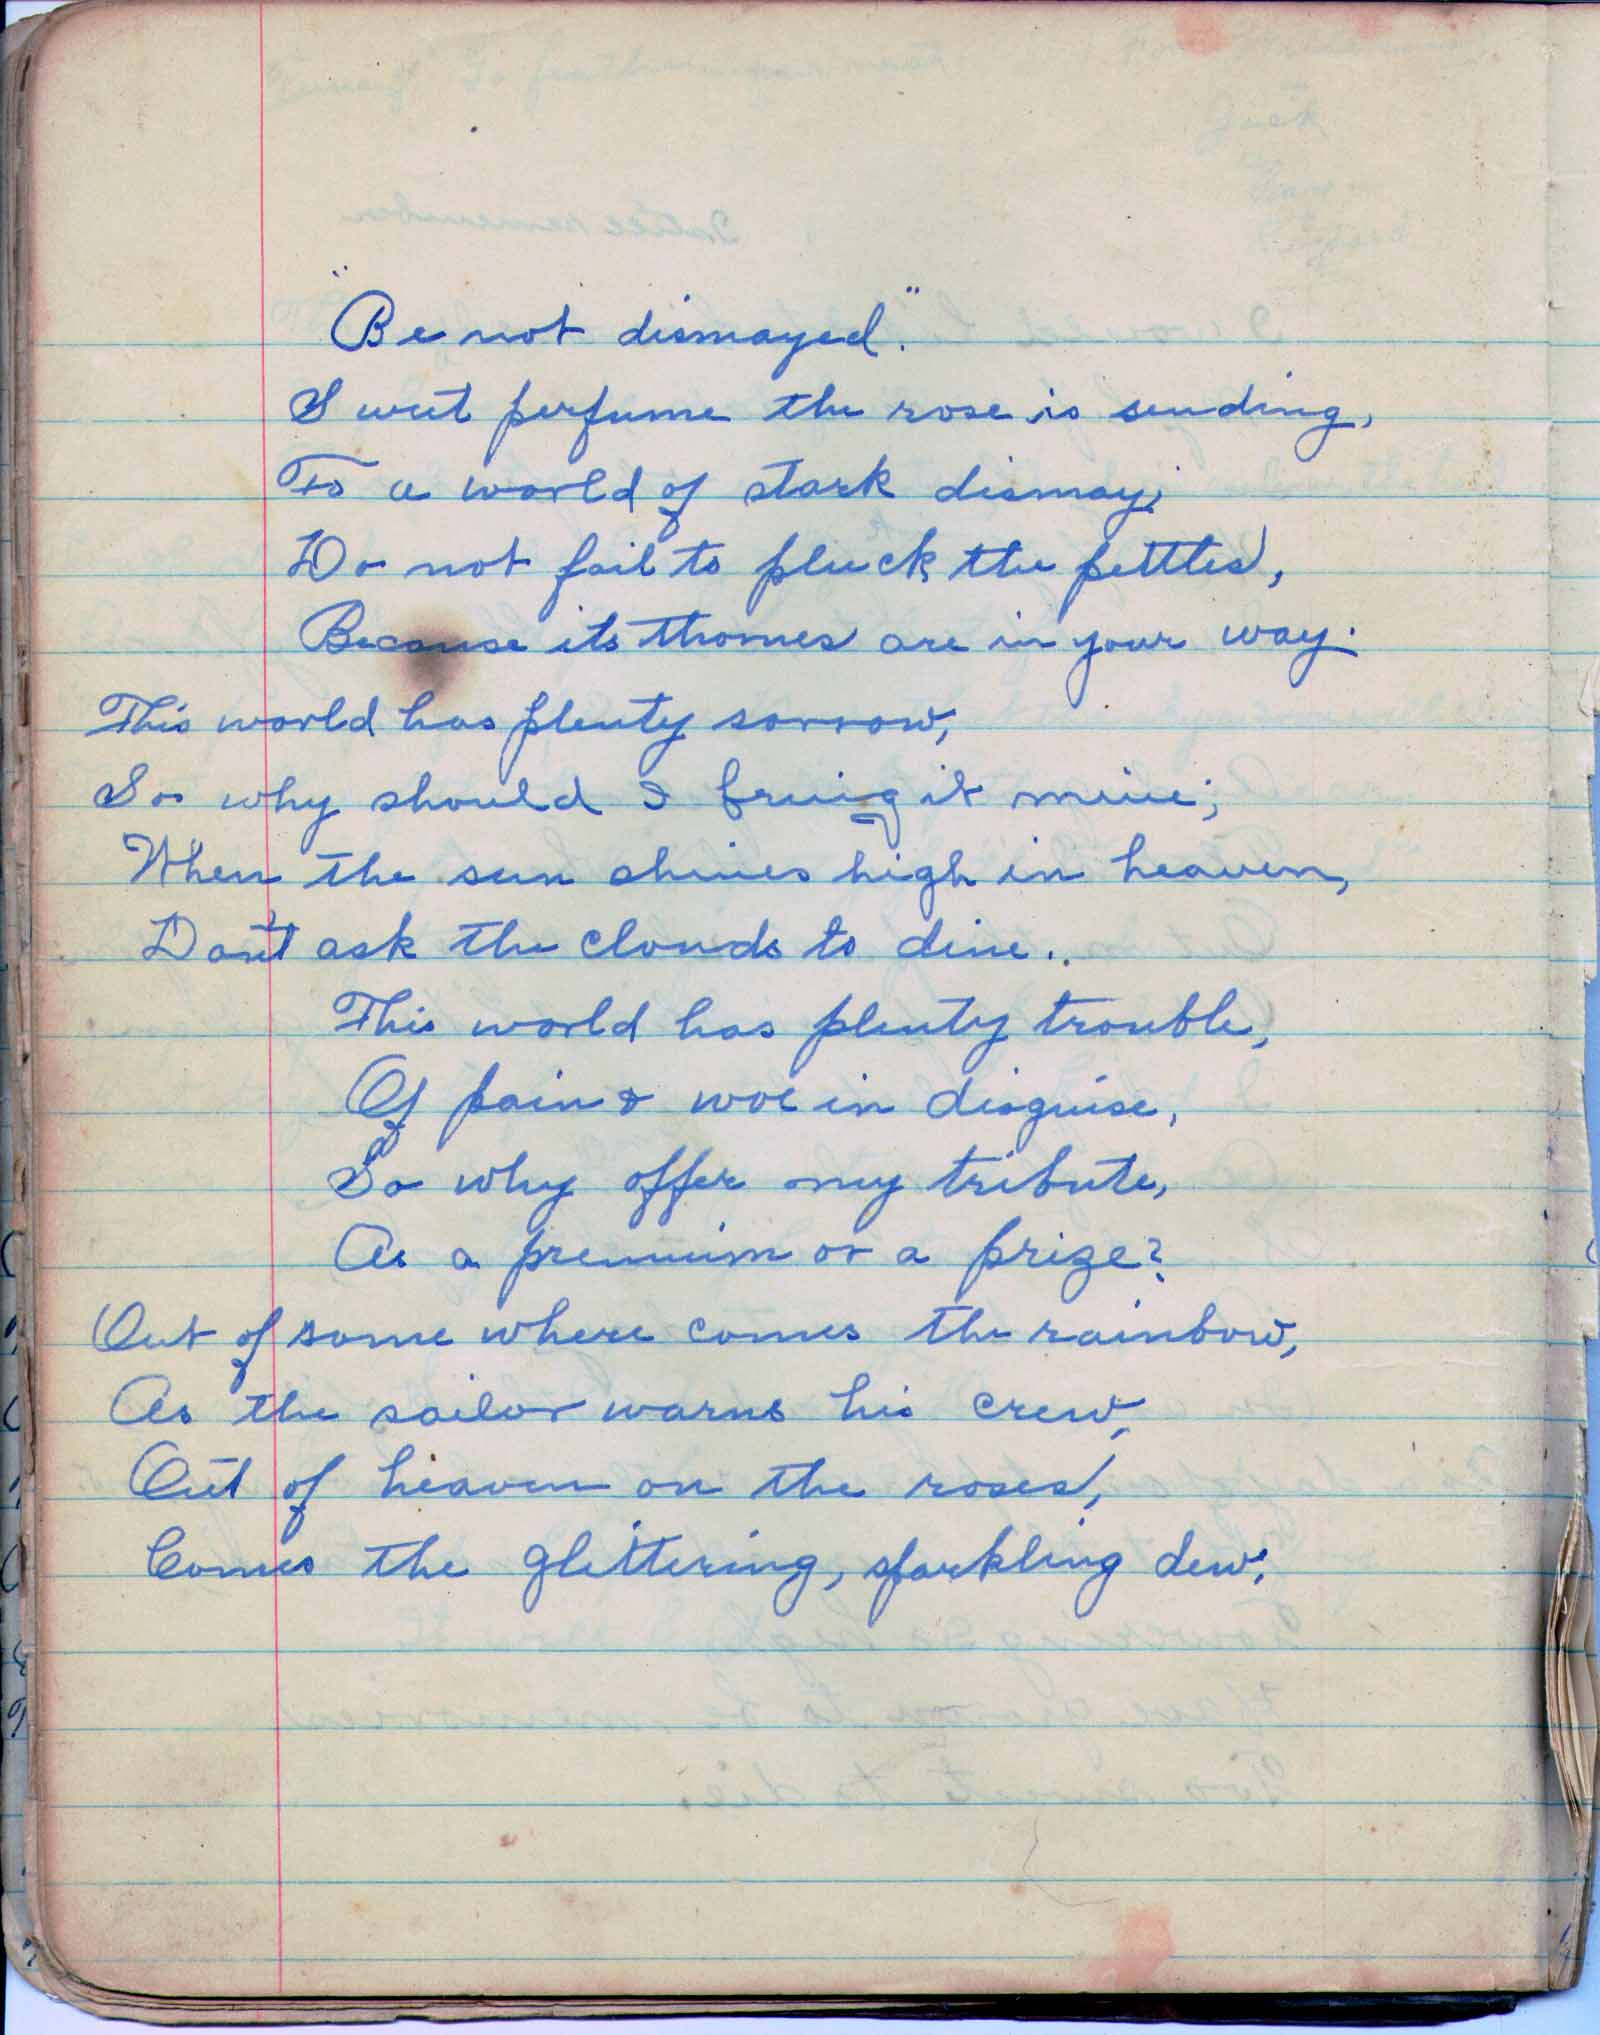 "Be not dismayed."
Sweet perfume the rose is sending,
To a world of stark dismay;
Do not fail to pluck the pettles,
Because its thornes are in your way.
This world has plenty sorrow,
So why should I bring it mine;
When the sun shines high in heaven,
Don't ask the clouds to dine..
This world has plenty trouble,
Of pain & woe in disguise,
So why offer my tribute,
As a premium or a prize?
Out of some where comes the rainbow,
As the sailor warns his crew,
Out of heaven on the roses,
Comes the glittering, sparkling dew.